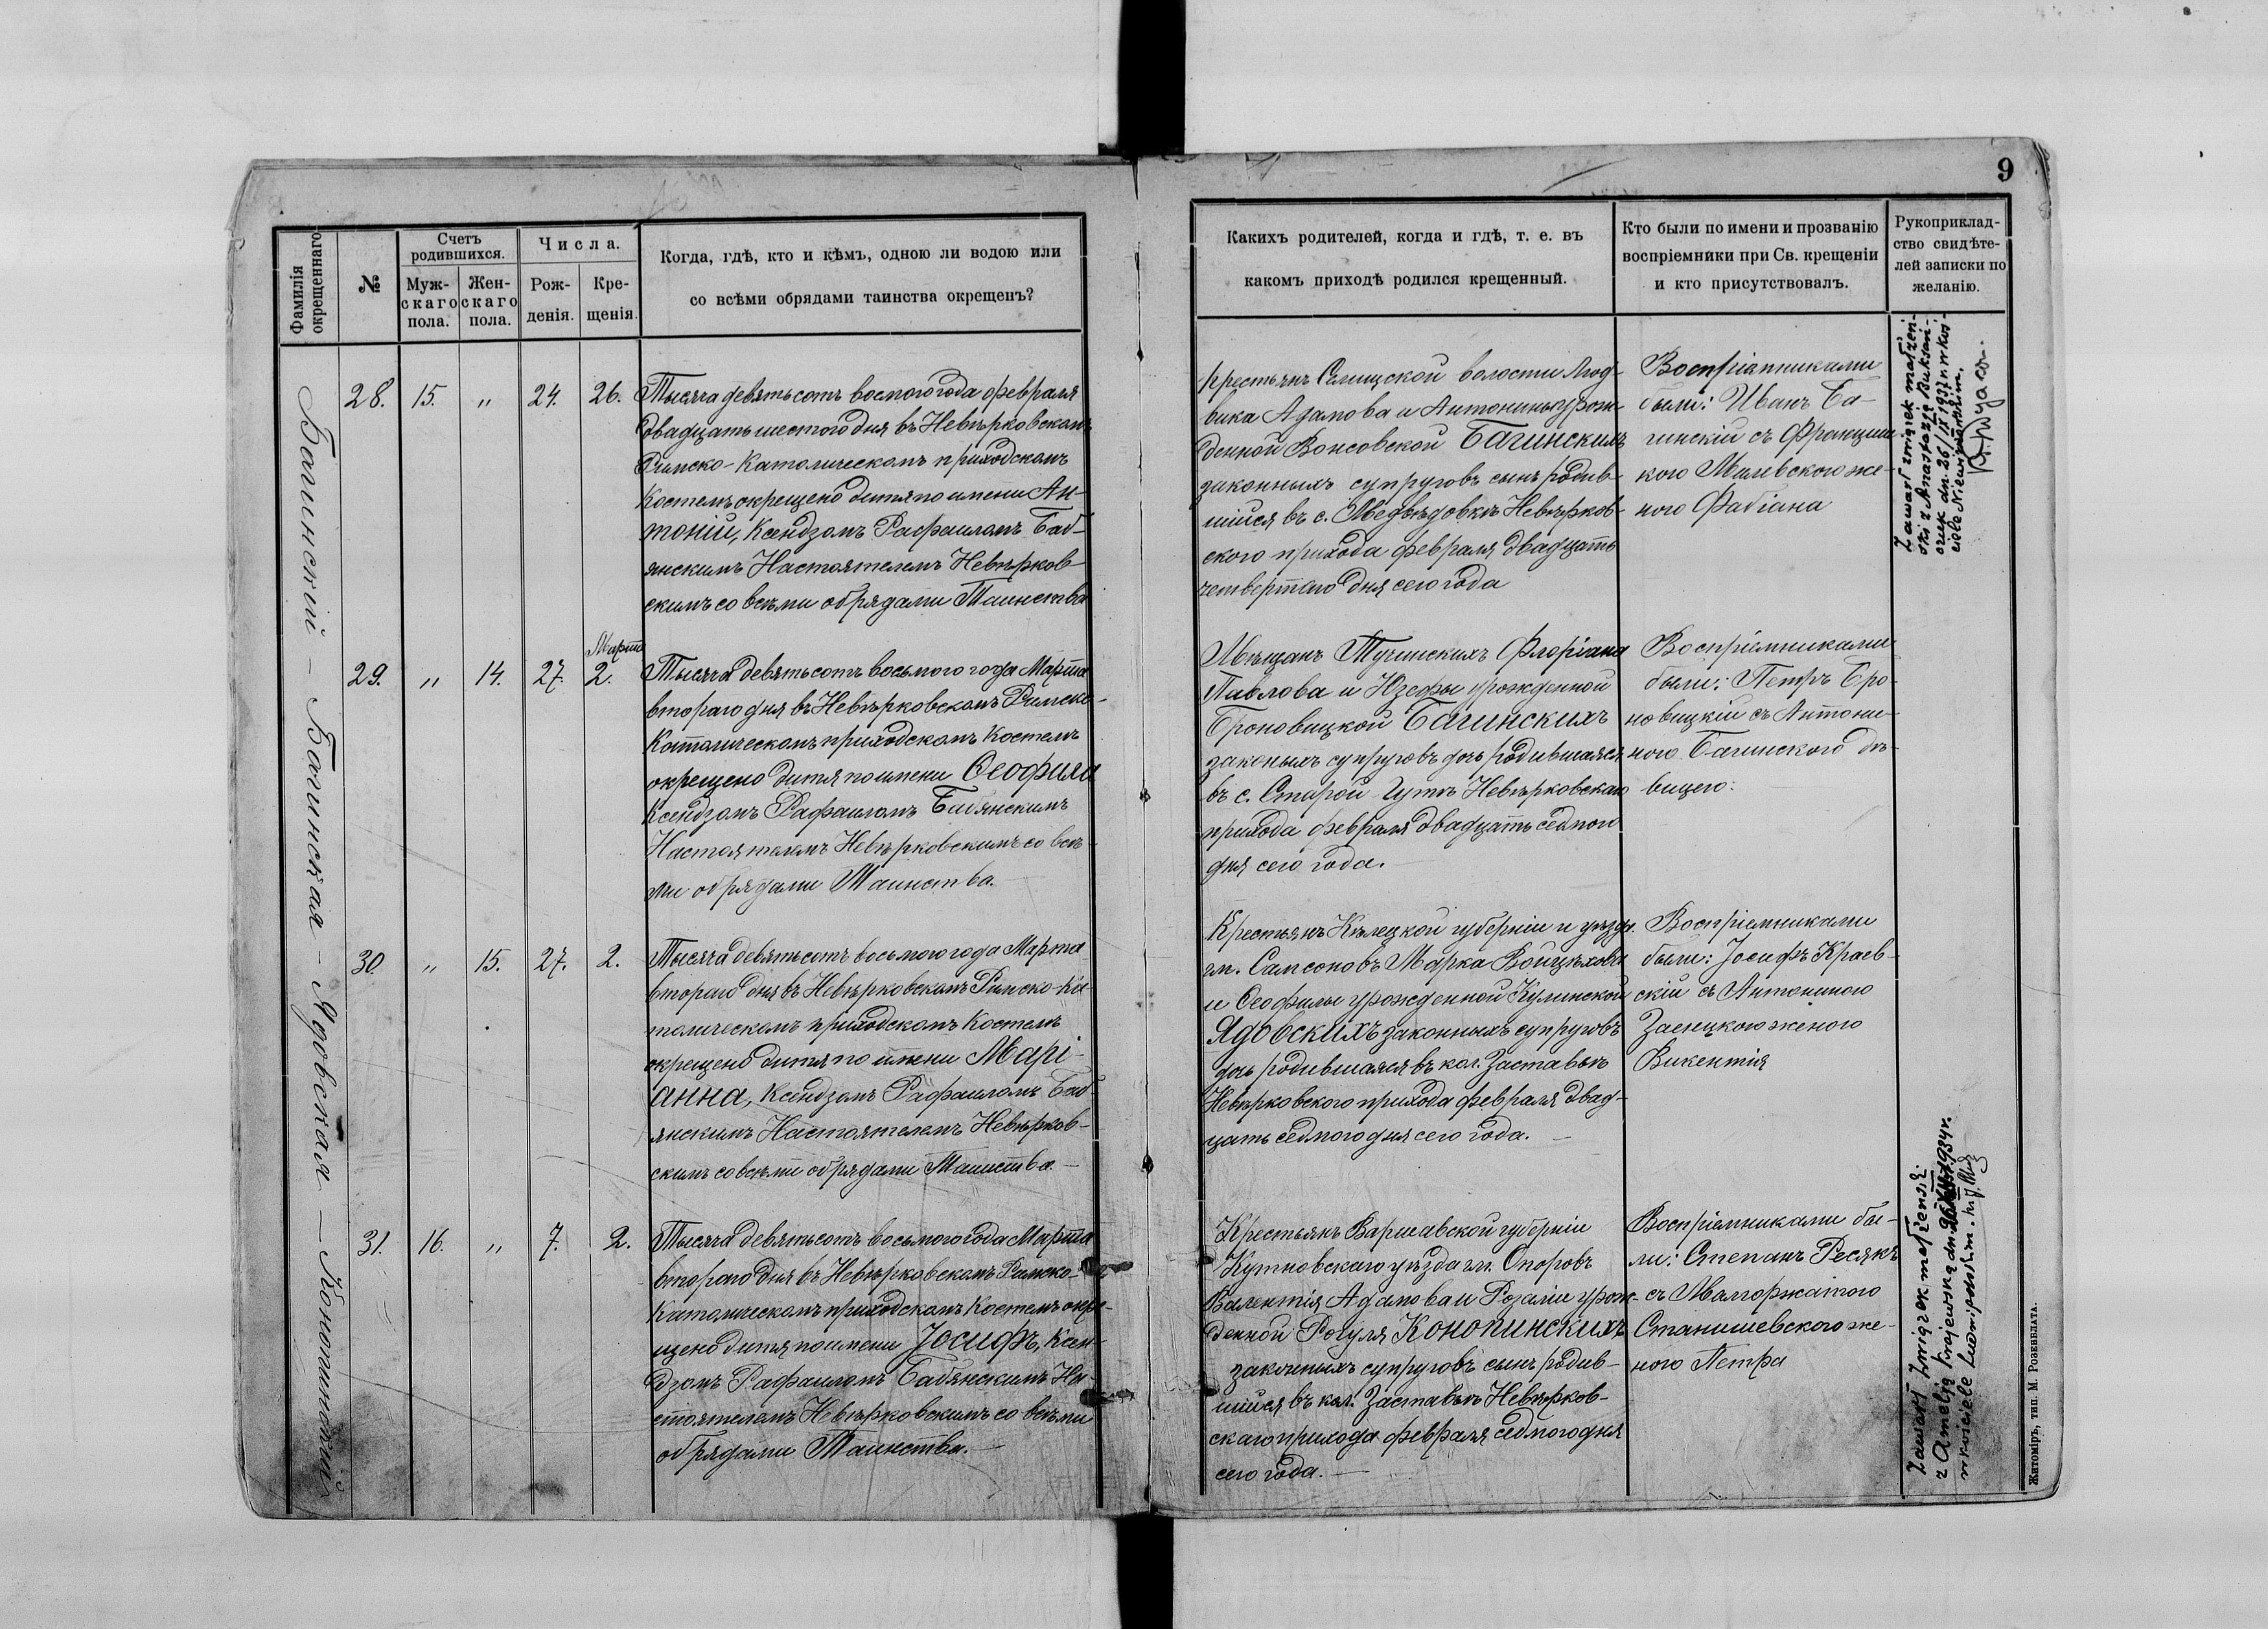 9
Фамилія окрещеннаго
№
Счетъ родившихся.
Муж-скаго пола.
Жен-скаго пола.
Числа.
Рож-денія.
Кре-щенія.
Когда, гдѣ, кто и кѣмъ, одною ли водою или
со всѣми обрядами таинства окрещенъ?
Какихъ родителей, когда и гдѣ, т. е. въ
какомъ приходѣ родился крещенный.
Кто были по имени и прозванію
воспріемники при Св. крещеніи
и кто присутствовалъ.
Рукоприклад-
ство свидѣте-
лей записки по
желанію.
Багинскій – Багинская – Ядовская –
28. 15. " 24. 26.
Тысяча девятьсотъ восмого года февраля
двадцать шестого дня въ Невѣрковскомъ
Римско-Католическомъ приходскомъ
Костелѣ окрещено дитя по имени Ан-
тоній, Ксендзомъ Рафаиломъ Баб-
янскимъ Настоятелемъ Невѣрков-
скимъ со всѣми обрядами Таинства
Крестьянъ Селищской волости Люд-
вика Адамова и Антонины урож-
денной Вонсовской Багинскихъ
законныхъ супруговъ сынъ родив-
шійся въ с. Медвѣдовкѣ Невѣрков-
ского прихода февраля двадцать
четвертого дня сего года
Воспріемниками
были: Иванъ Ба-
гинскій съ Францишкого Милевского же-
ного Фабіана
Zawarł związek małżeń-
ski z Anastazją
dn. 26/IX 1937 w koś-
ciele
29. " 14. 27. Марта 2.
Тысяча девятьсотъ восьмого года Марта
второго дня въ Невѣрковскомъ Римско-
Католическомъ приходскомъ Костелѣ
окрещено дитя по имени Ѳеофиля
Ксендзомъ Рафаиломъ Бабянскимъ
Настоятелемъ Невѣрковскимъ со всѣ-
ми обрядами Таинства.
Мѣщанъ Тучинскихъ Флоріана
Павлова и Юзефы урожденной
Броновицкой Багинскихъ
законыхъ супруговъ дочь родившаяся
въ с. Старой Гутѣ Невѣрковскаго
прихода февраля двадцать седмого
дня сего года.
Воспріемниками
были: Петръ Бро-
новицкій съ Антони-
ного Багинского дѣ-
вицего:
30. " 15. 27. 2.
Тысяча девятьсотъ восьмого года Марта
второго дня въ Невѣрковскомъ Римско-Ка-
толическомъ приходскомъ Костелѣ
окрещено дитя по имени Марі-
анна, Ксендзомъ Рафаиломъ Баб-
янскимъ Настоятелемъ Невѣрков-
скимъ со всѣми обрядами Таинства. –
Крестьянъ Кѣлецкой губерніи и уѣзда
гм. Самсоновъ Марка Войцѣхова
и Ѳеофилы урожденной Кулинской
Ядовскихъ законныхъ супруговъ
дочь родившаяся въ кол. Заставьѣ
Невѣрковского прихода февраля двад-
цать седмого дня сего года. –
Воспріемниками
были: Іосифъ Краев-
скій съ Антониного
женого
Викентія
31. 16. " 7. 2.
Тысяча девятьсотъ восьмого года Марта
второго дня въ Невѣрковскомъ Римско-
Католическомъ приходскомъ Костелѣ окре-
щено дитя по имени Іосифъ, Ксен-
дзомъ Рафаиломъ Бабянскимъ На-
стоятелемъ Невѣрковскимъ со всѣми
обрядами Таинства. –
Крестьянъ Варшавской губерніи
Кутновскаго уѣзда гм. Опоровъ
Валентія Адамова и Розаліи урож-
денной Рогуля Конопинскихъ
законныхъ супруговъ сынъ родив-
шійся въ кол. Заставьѣ Невѣрков-
скаго прихода февраля седмого дня
сего года. –
Воспріемниками бы-
ли: Степанъ Ресякъ
съ Малгоржатого
Станишевского же-
ного Петра
Zawarł związek małżeński
z Amelją Krajewską dn. 1934 r.
w kościele
Житоміръ, тип. М. Розенблата.